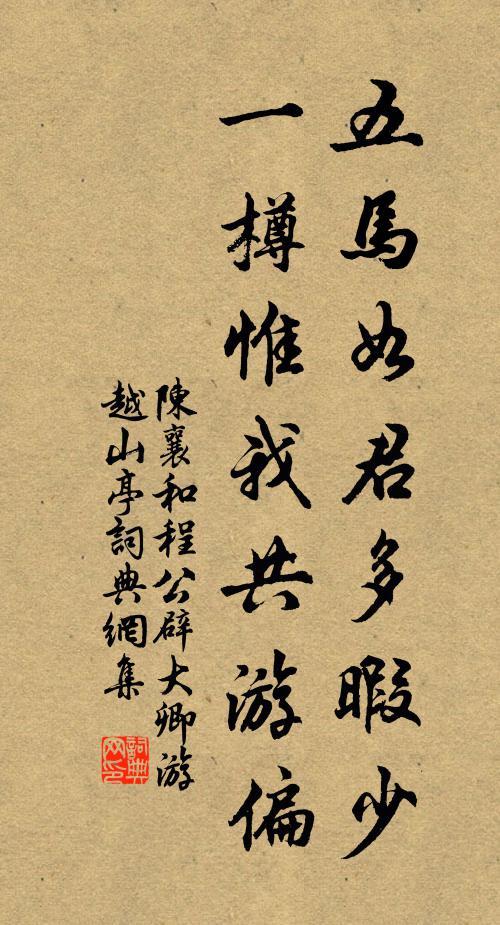 五馬如君多暇少
一樽惟我共游偏
陳襄和程公辟大卿游
越山亭詞典網集
詞典网印